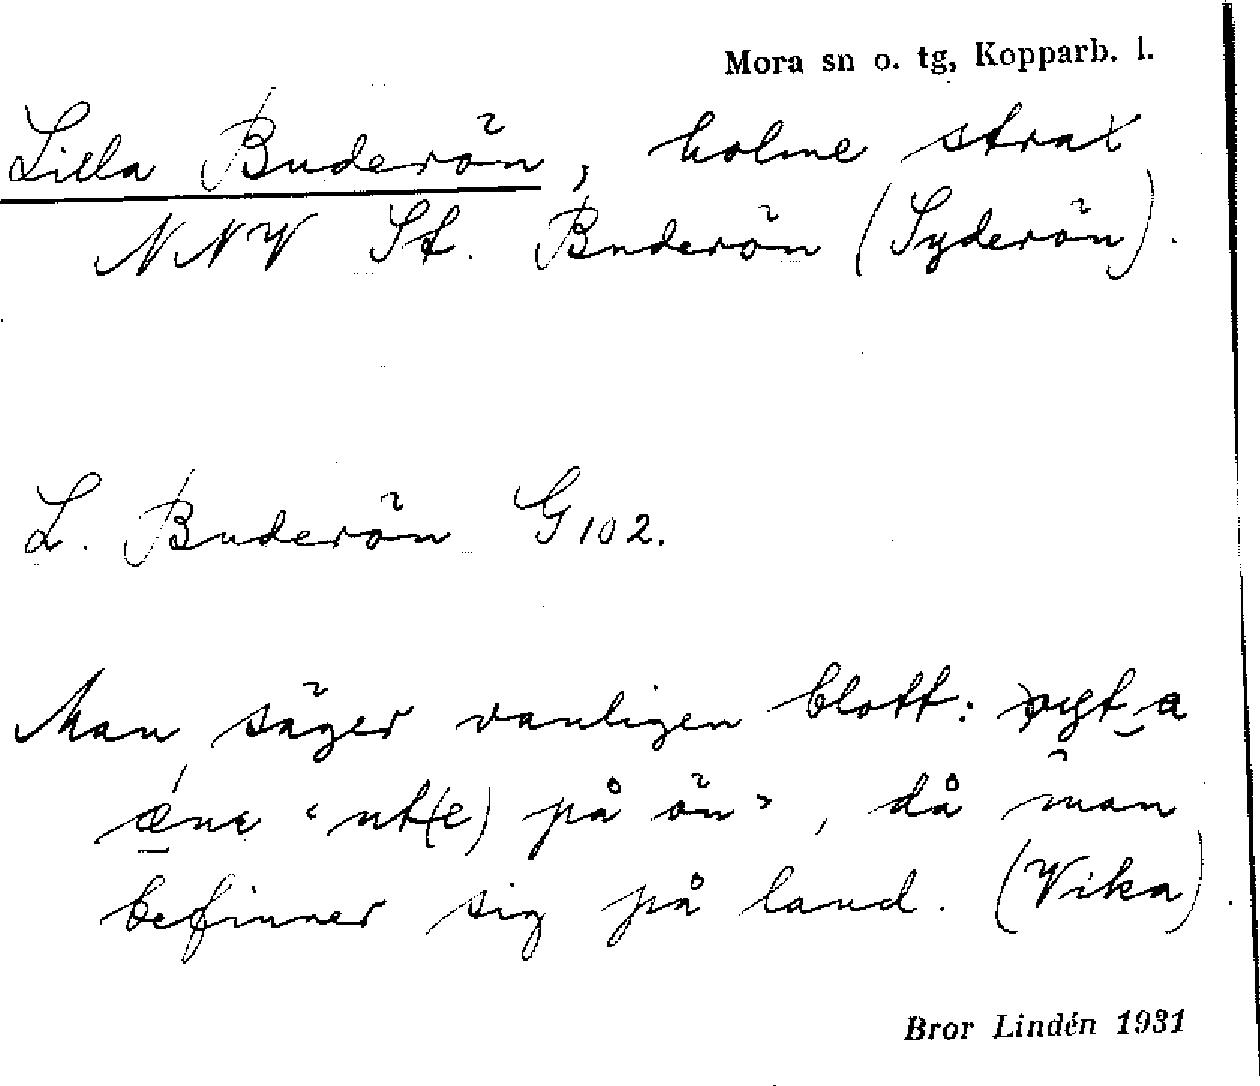 Mora sn o. tg, Kopparb. l.
Lilla Buderön, holme strax
NNV St. Buderön (Syderön).
L. Buderön G 102.
Man säger vanligen blott:
"ut(e) på ön", då man
befinner sig på land. (Vika).
Bror Lindén 1931